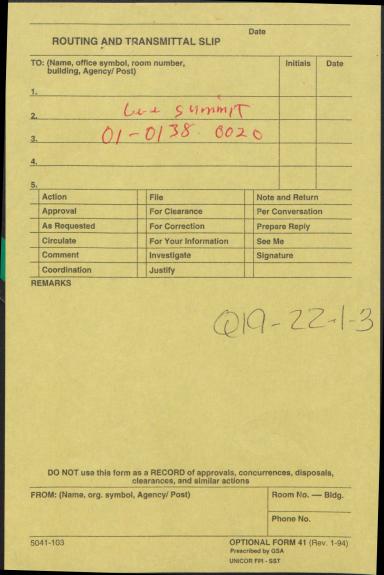 Date
ROUTING AND TRANSMITTAL SLIP
TO: (Name, office symbol, room number, building, Agency/ Post)
Initials
Date
1.
2. Lee summit
3. 01-0138 0020
4.
5.
Action File Note and Return
Approval For Clearance Per Conversation
As Requested For Correction Prepare Reply
Circulate For Your Information See Me
Comment Investigate Signature
Coordination Justify
REMARKS
Q19-22-1-3
DO NOT use this form as a RECORD of approvals, concurrences, disposals,
clearances, and similar actions
FROM: (Name, org. symbol, Agency/ Post)
Room No. — Bldg.
Phone No.
5041-103
OPTIONAL FORM 41 (Rev. 1-94)
Prescribed by GSA
UNICOR FPI - SST